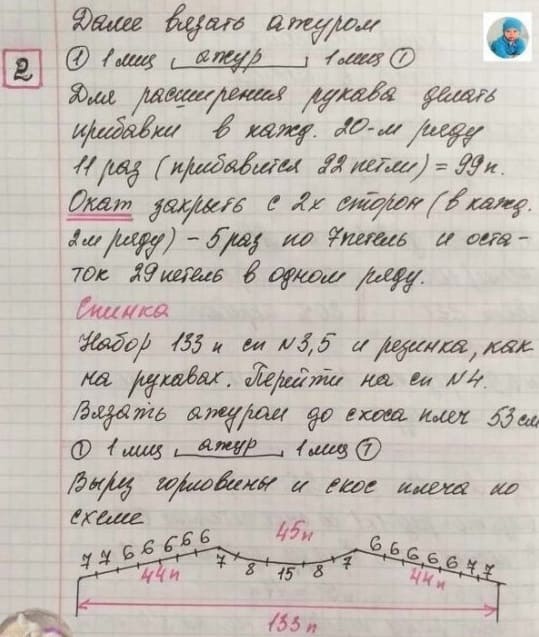 Далее вязать ажуром
2
① 1 лиц ажур 1 лиц ①
Для расширения рукава делать
прибавки в кажд. 20-м ряду
11 раз (прибавится 22 петли) = 99 п.
Окат закрыть с 2х сторон (в кажд.
2м ряду) - 5 раз по 7 петель и оста-
ток 29 петель в одном ряду.
Спинка
Набор 133 п сп №3,5 и резинка, как
на рукавах. Перейти на сп №4.
Вязать ажуром до скоса плеч 53 см
① 1 лиц ажур 1 лиц ①
Вырез горловины и скос плеча по
схеме
7 7 6 6 6 6 6 45п 6 6 6 6 6 7 7
7 8 15 8 7
44п 44п
133 п